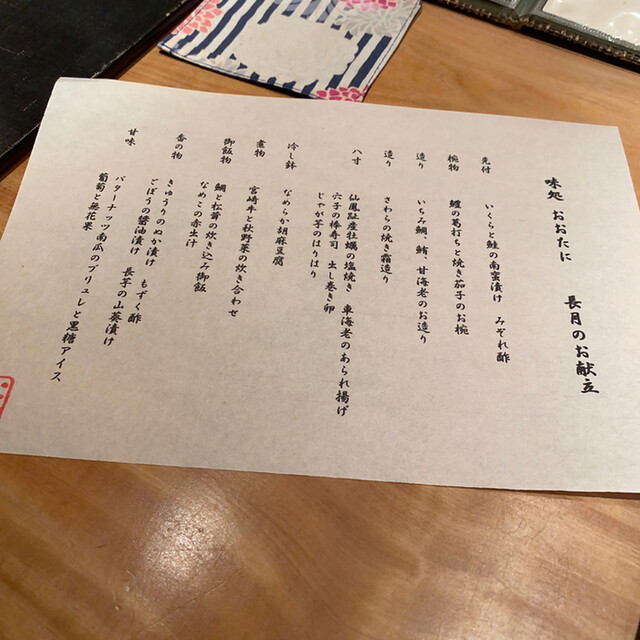 味処 おおたに 長月のお献立
先付 いくらと鮭の南蛮漬け みぞれ酢
椀物 鱧の葛打ちと焼き茄子のお椀
造り いらみ鯛、鮪、甘海老のお造り
造り さわらの焼き霜造り
八寸 仙鳳趾産牡蠣の塩焼き 車海老のあられ揚げ
穴子の棒寿司 出し巻き卵
じゃが芋のはりはり
冷し鉢 なめらか胡麻豆腐
煮物 宮崎牛と秋野菜の炊き合わせ
御飯物 鯛と松茸の炊き込み御飯
なめこの赤出汁
香の物 きゅうりのぬか漬け もずく酢
ごぼうの醤油漬け 長芋の山葵漬け
甘味 バターナッツ南瓜のブリュレと黒糖アイス
葡萄と無花果